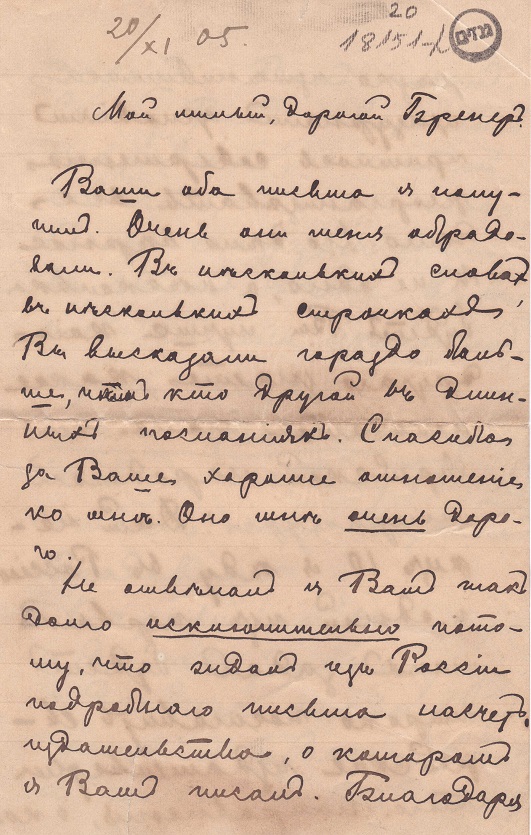 20/XI 05.
20
18151-/2
גנזים
Мой милый, дорогой Бренеръ.
Ваши оба письма я полу-
чилъ. Очень они меня обрадо-
вали. Въ нѣсколькихъ словахъ,
въ нѣсколькихъ строчкахъ
Вы высказали гораздо боль-
ше, чѣмъ кто другой въ длин-
ныхъ посланіяхъ. Спасибо
за Ваше хорошее отношеніе
ко мнѣ. Оно мнѣ очень доро-
го.
Не отвѣчалъ я Вамъ такъ
долго исключительно пото-
му, что ждалъ изъ Россіи
подробнаго письма насчетъ
издательства, о которомъ
я Вамъ писалъ. Благодаря